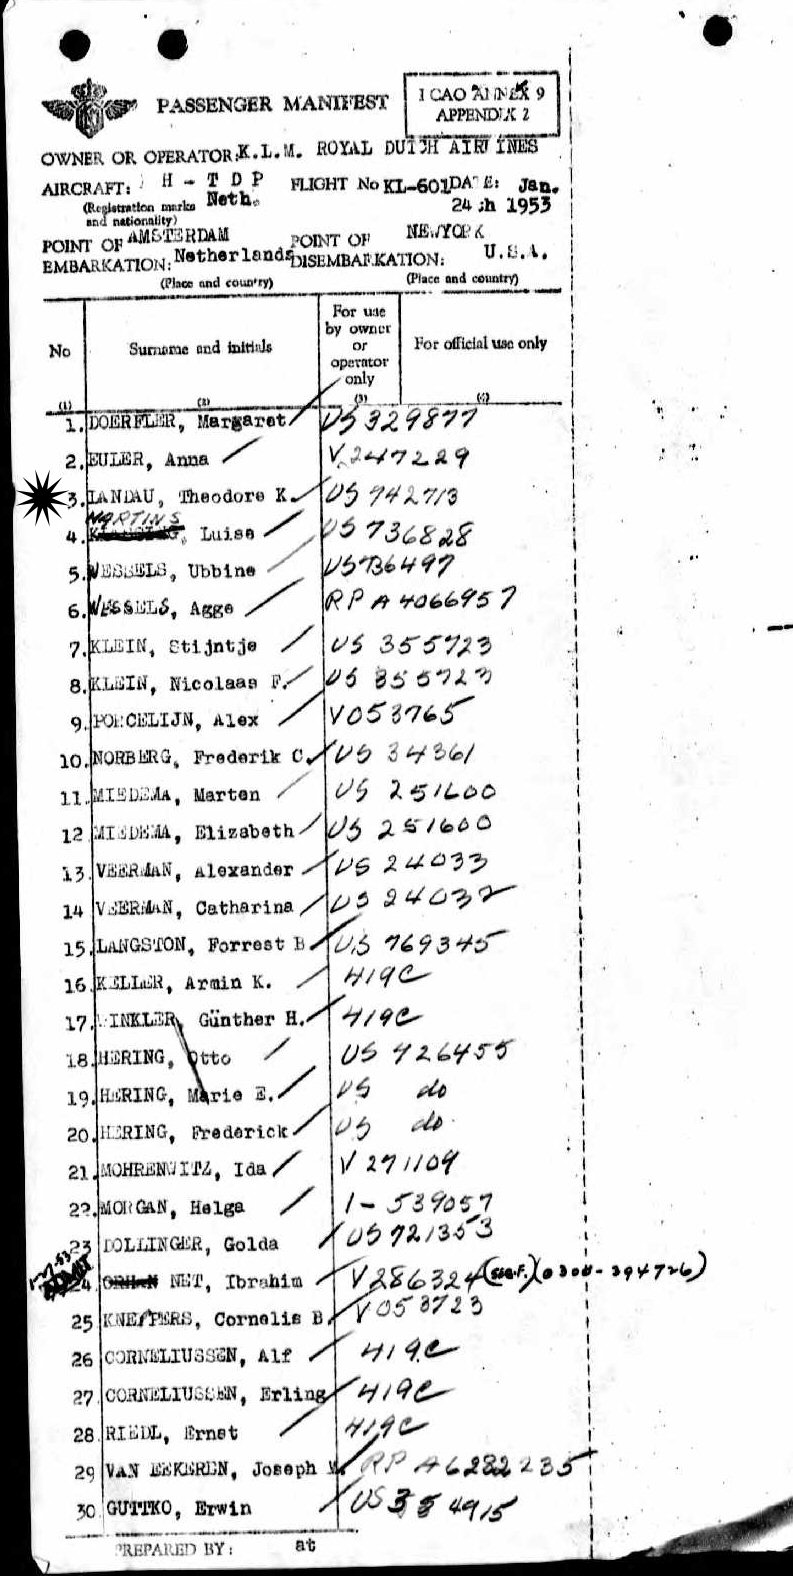 PASSENGER MANIFEST
ICAO ANNEX 9
APPENDIX 2
OWNER OR OPERATOR: K.L.M. ROYAL DUTCH AIRLINES
AIRCRAFT: H - T D P FLIGHT No KL-601 DATE: Jan.
(Registration marks and nationality) Neth. 24th 1953
POINT OF EMBARKATION: AMSTERDAM Netherlands POINT OF DISEMBARKATION: NEWYORK U.S.A.
(Place and country) (Place and country)
No Surname and initials For use by owner or operator only For official use only
(1) (2) (3) (4)
1. DOERFLER, Margaret US 329877
2. EULER, Anna V.247229
3. LANDAU, Theodore K. US 742713
MARTINS
4. Luise US 736828
5. WESSELS, Ubbine US736497
6. WESSELS, Agge RP A 4066957
7. KLEIN, Stijntje US 355723
8. KLEIN, Nicolaas F. US 355723
9. PORCELIJN, Alex V053765
10. NORBERG, Frederik C. US 34361
11. MIEDEMA, Marten US 251600
12 MIEDEMA, Elizabeth US 251600
13. VEERMAN, Alexander US 24033
14 VEERMAN, Catharina US 24032
15. LANGSTON, Forrest B US 769345
16. KELLER, Armin K. 419C
17. WINKLER, Günther H. 419C
18. HERING, Otto US 426455
19. HERING, Marie E. US do
20. HERING, Frederick US do.
21. MOHRENWITZ, Ida V 271109
22. MORGAN, Helga 1- 539057
23 DOLLINGER, Golda US721353
1-27-53
ADMIT
24. ORHAN NET, Ibrahim V286324 (0300-394726)
25 KNEPPERS, Cornelis B V053723
26 CORNELIUSSEN, Alf 419C
27 CORNELIUSSEN, Erling 419C
28 RIEDL, Ernst 419C
29 VAN EEKEREN, Joseph M. RP A6282235
30 GUTTKO, Erwin US 4915
PREPARED BY: at